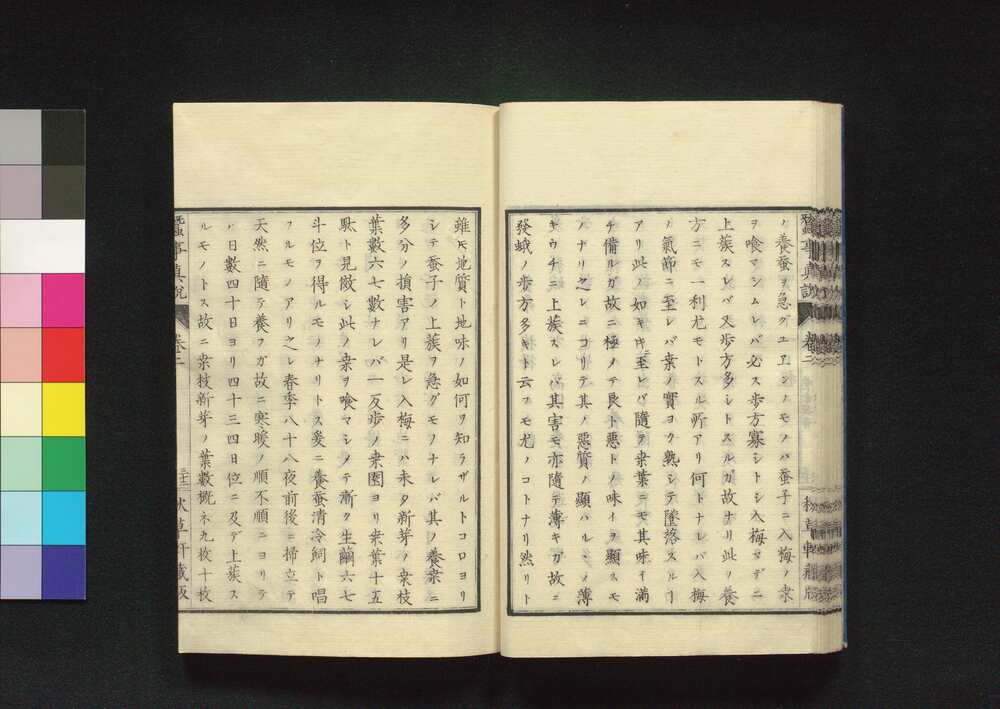 蠶事眞説
卷二
秋草軒藏版
ノ養蚕ヲ急グユエンノモノハ蚕子ニ入梅ノ桒
ヲ喰マシムレバ必ス歩方寡シトシ入梅マデニ
上蔟スレバ又歩方多シトスルガ故ナリ此ノ養
方ニモ一利尤モトスル所アリ何トナレバ入梅
ノ氣節ニ至レバ桒ノ實ヨク熟シテ墜落スルヿ
アリ此ノ如キニ至レバ隨テ桒葉ニモ其味イ満
チ備ルガ故ニ極メテ良ト悪トノ味イヲ顯スモ
ノナリ之レニコリテ其ノ悪質ノ顯ハルヽノ薄
キウチニ上蔟スレバ其害モ亦隨テ薄キガ故ニ
發蛾ノ歩方多キト云フモ尤ノコトナリ然リト
雖モ地質ト地味ノ如何ヲ知ラザルトコロヨリ
シテ蚕子ノ上蔟ヲ急グモノナレバ其ノ養桒ニ
多分ノ損害アリ是レ入梅ニハ未タ新芽ノ桒枝
葉數六七數ナレバ一反歩ノ桒園ヨリ桒葉十五
駄ト見做シ此ノ桒ヲ喰マシメテ漸ク生繭六七
斗位ヲ得ルモノナリトス爰ニ養蚕清冷飼ト唱
フルモノアリ之レ春季八十八夜前後ニ掃立テ
天然ニ隨テ養フガ故ニ寒暖ノ順不順ニヨリテ
ハ日數四十日ヨリ四十三四日位ニ及テ上蔟ス
ルモノトス故ニ桒枝新芽ノ葉數概ネ九枚十枚
蠶事眞説
卷二
秋草軒藏版